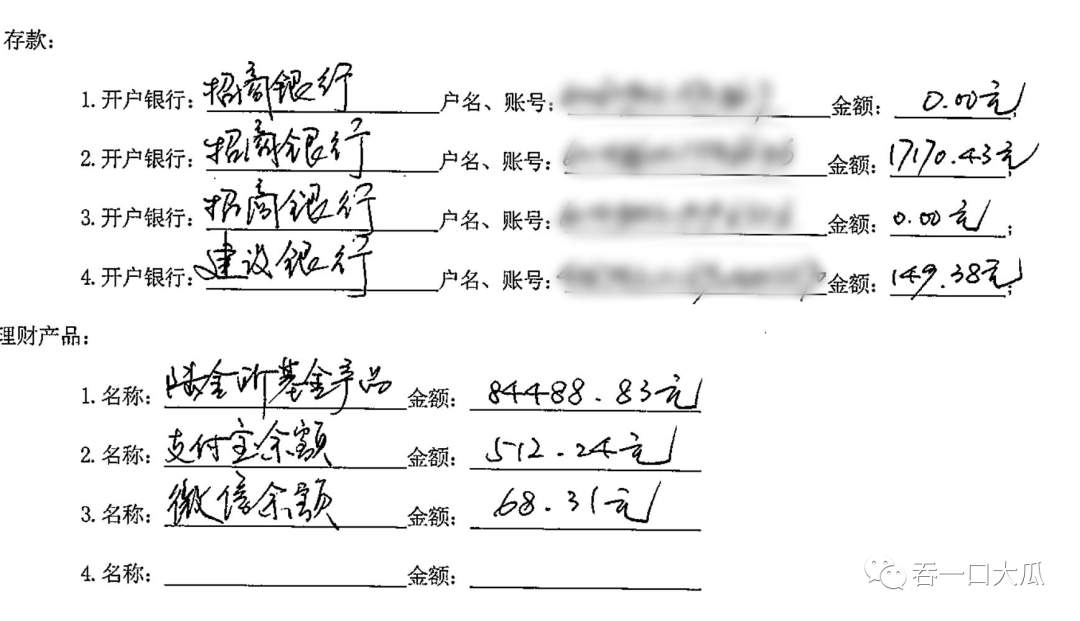 存款：
1.开户银行：招商银行 户名、账号： 金额：0.00元；
2.开户银行：招商银行 户名、账号： 金额：17170.43元
3.开户银行：招商银行 户名、账号： 金额：0.00元；
4.开户银行：建设银行 户名、账号： 金额：149.38元；
理财产品：
1.名称：陆金所基金产品 金额：84488.83元
2.名称：支付宝余额 金额：512.24元
3.名称：微信余额 金额：68.31元
4.名称： 金额：
吞一口大瓜